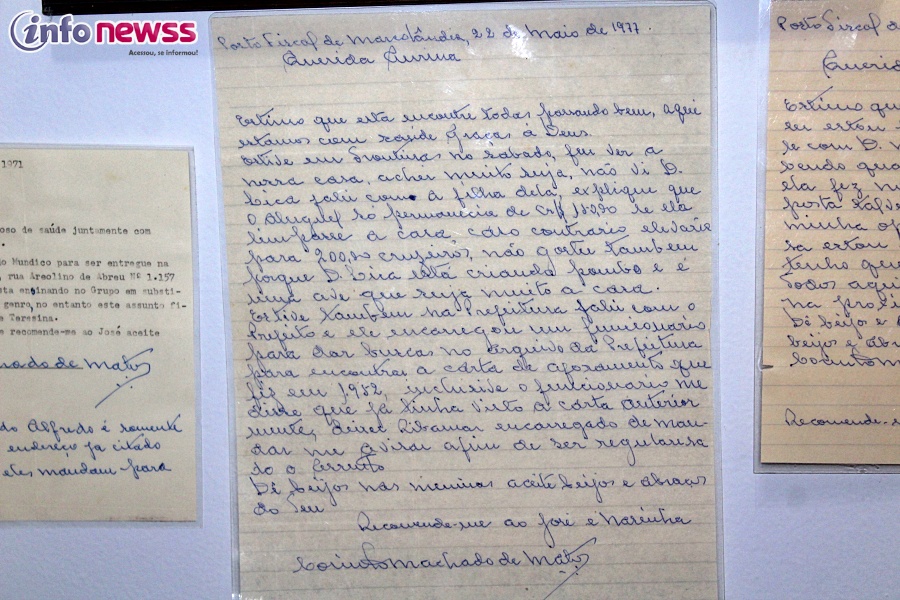 infonewss
Acessou, se informou!
1971
oso de saúde juntamente com
do Mundico para ser entregue na
, rua Areolino de Abreu Nº 1.157
sta ensinando no Grupo em substi-
genro, no entanto este assunto fi-
e Teresina.
se recomende-me ao José aceite
hado de Matos
do Alfredo é somente
endereço já citado
eles mandam para
Porto Fiscal de Marcolândia, 22 de Maio de 1977.
Querida Aurina
Estimo que esta encontre todas passando bem, aqui
estamos com saúde graças à Deus.
Estive em Fronteiras no sábado, fui ver a
nossa casa, achei muito suja, não vi D.
Lica falei com a filha dela, expliquei que
o aluguel só permanecia de Cr$ se ela
limpasse a casa caso contrario elevaria
para 200,00 cruzeiros, não gostei também
porque D. Lica está criando pombo e é
uma ave que suja muito a casa.
Estive também na Prefeitura falei com o
Prefeito e ele encarregou um funcionario
para dar buscas no arquivo da Prefeitura
para encontrar a carta de aforamento que
fiz em 1952, inclusive o funcionario me
disse que já tinha visto a carta anterior
mente, deixei Ribamar encarregado de man-
dar me avisar afim de ser regularisa
do o terreno
Dê beijos nas meninas aceite beijos e abraços
do Seu
Recomende-me ao José e Narinha
Corinto Machado de Matos
Porto Fiscal d
Querid
Estimo qu
eu estou
le com D.
vendo qua
ela fez
posta talve
minha op
sa estou
tenho que
Todos aqui
na proxi
Dê beijos e
beijos e abr
Corinto M
Recomende-